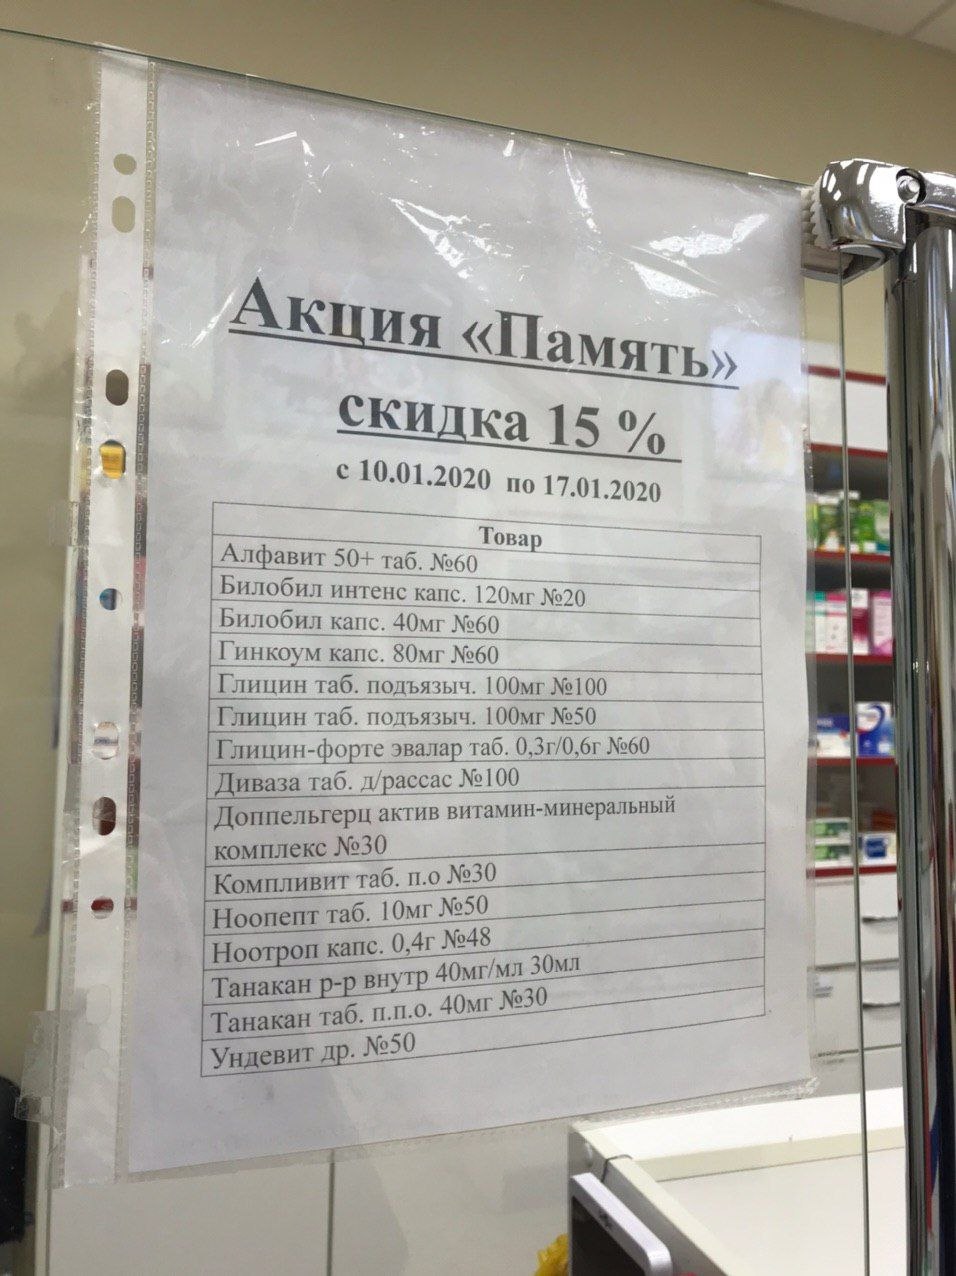 Акция «Память»
скидка 15 %
с 10.01.2020 по 17.01.2020
Товар
Алфавит 50+ таб. №60
Билобил интенс капс. 120мг №20
Билобил капс. 40мг №60
Гинкоум капс. 80мг №60
Глицин таб. подъязыч. 100мг №100
Глицин таб. подъязыч. 100мг №50
Глицин-форте эвалар таб. 0,3г/0,6г №60
Диваза таб. д/рассас №100
Доппельгерц актив витамин-минеральный
комплекс №30
Компливит таб. п.о №30
Ноопепт таб. 10мг №50
Ноотроп капс. 0,4г №48
Танакан р-р внутр 40мг/мл 30мл
Танакан таб. п.п.о. 40мг №30
Ундевит др. №50